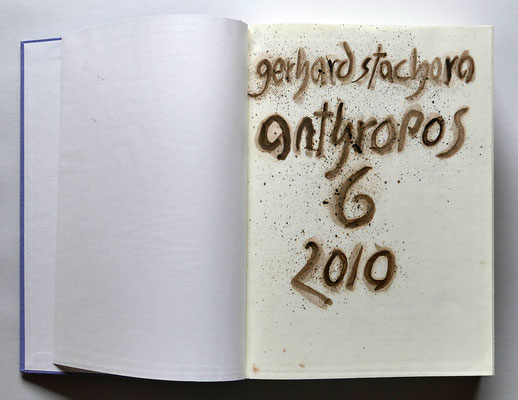 gerhard stachora
anthropos
6
2010